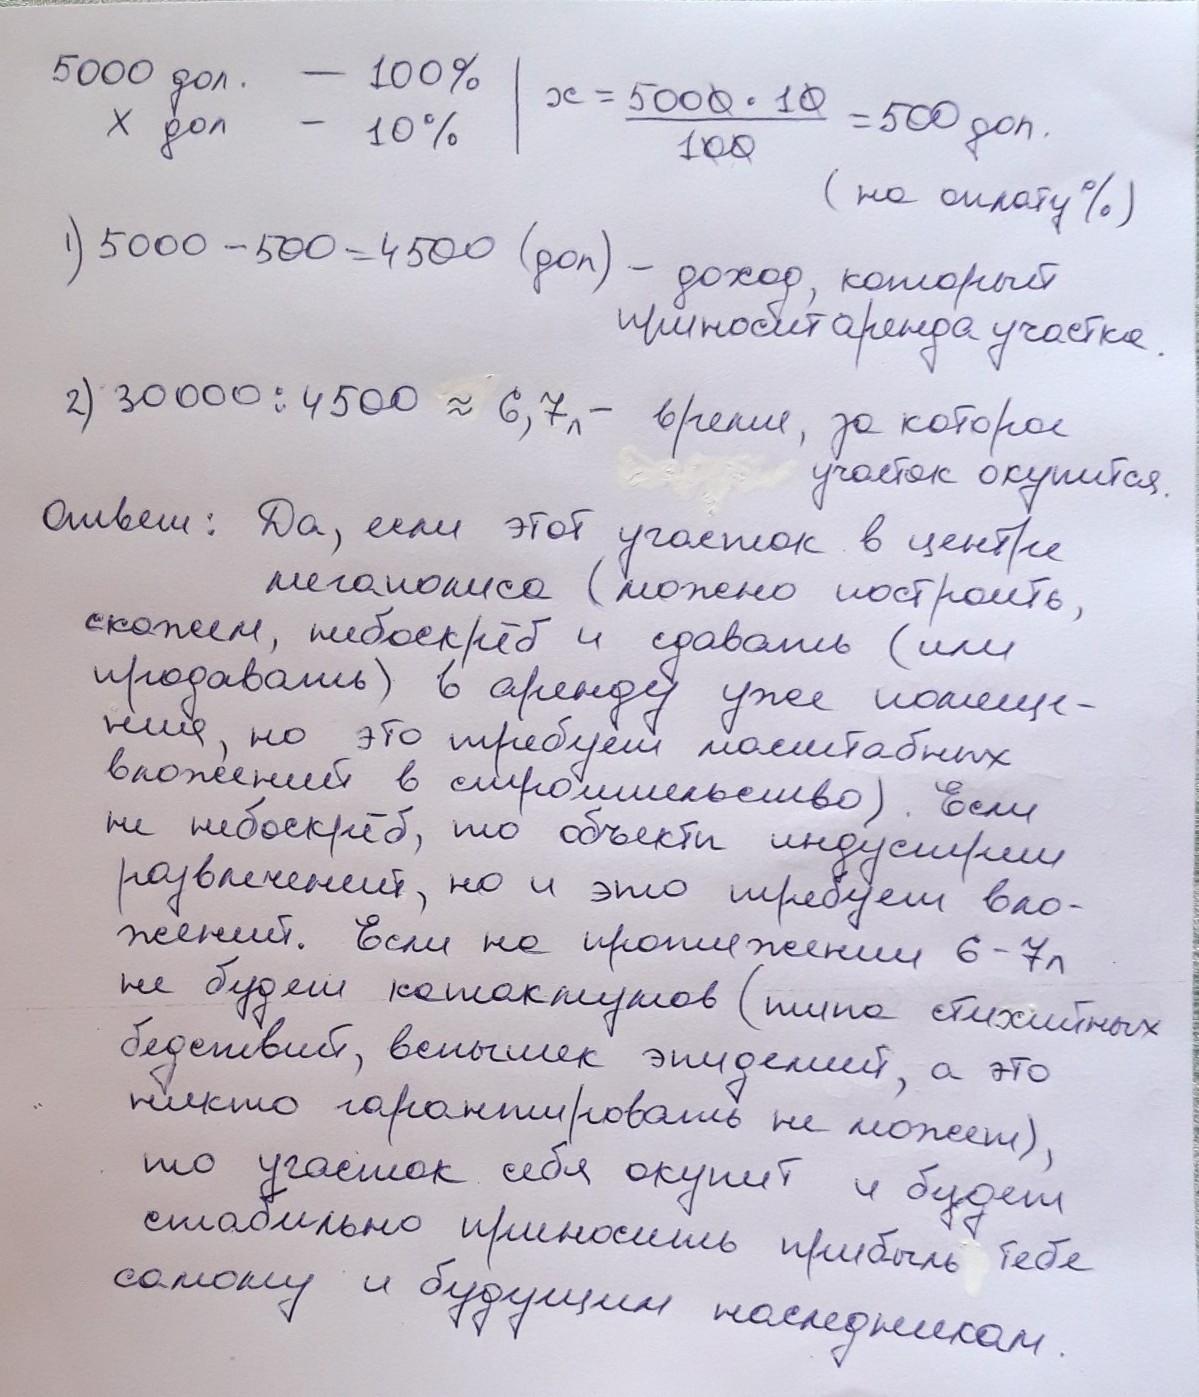 5000 дол. — 100% | x = 5000 · 10 / 100 = 500 дол.
X дол — 10%
(на оплату %)
1) 5000 - 500 = 4500 (дол) - доход, который
приносит аренда участка.
2) 30000 : 4500 ≈ 6,7 л - время, за которое
участок окупится.
Ответ: Да, если этот участок в центре
мегаполиса (можно построить,
скажем, небоскрёб и сдавать (или
продавать) в аренду уже помеще-
ния, но это требует масштабных
вложений в строительство). Если
не небоскрёб, то объекты индустрии
развлечений, но и это требует вло-
жений. Если на протяжении 6-7 л
не будет катаклизмов (типа стихийных
бедствий, вспышек эпидемий, а это
никто гарантировать не может),
то участок себя окупит и будет
стабильно приносить прибыль тебе
самому и будущим наследникам.